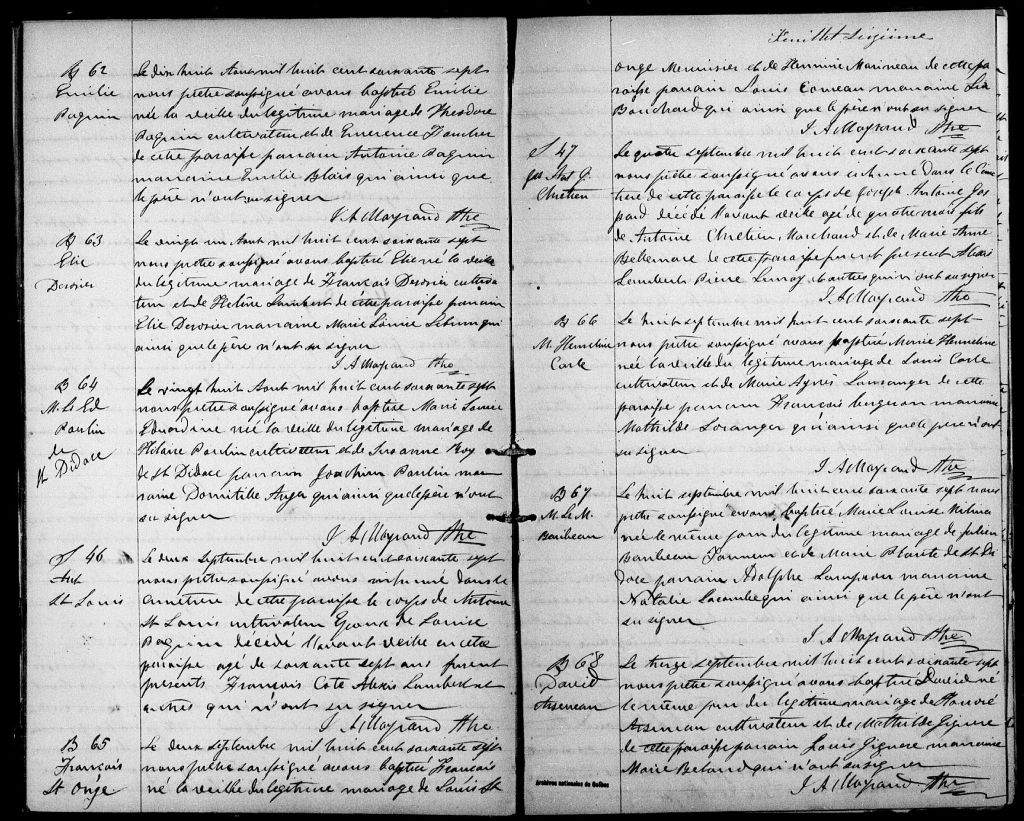 B 62
Emilie
Paquin
Le dix huit Aout mil huit cent soixante sept
nous prêtre soussigné avons baptisé Emilie
née la veille du légitime mariage de Theodore
Paquin cultivateur et de Emerence
de cette paroisse parrain Antoine Paquin
marraine Emilie Blais qui ainsi que
le père n'ont su signer
J. A. Mayrand Ptre
B 63
Elie
Desrosier
Le vingt un Aout mil huit cent soixante sept
nous prêtre soussigné avons baptisé Elie né la veille
du légitime mariage de François Derosier cultiva
teur et de Helène Lambert de cette paroisse parrain
Elie Derosier marraine Marie Louise qui
ainsi que le père n'ont su signer
J. A. Mayrand Ptre
B 64
M. Ls Ed
Paulin
de
St Didace
Le vingt huit Aout mil huit cent soixante sept
nous prêtre soussigné avons baptisé Marie Louise
née la veille du légitime mariage de
Hilaire Paulin cultivateur et de Roy
de St Didace parrain Joachim Paulin mar
raine Domitille qui ainsi que le père n'ont
su signer
J. A. Mayrand Ptre
S 46
Ant
St Louis
Le deux Septembre mil huit cent soixante sept
nous prêtre soussigné avons inhumé dans le
cimetière de cette paroisse le corps de Antoine
St Louis cultivateur Epoux de Louise
Paquin décédé l'avant veille en cette
paroisse agé de soixante sept ans furent
présents François Cote Alexis Lambert et
autres qui n'ont su signer
J. A. Mayrand Ptre
B 65
François
St Onge
Le deux septembre mil huit cent soixante sept
nous prêtre soussigné avons baptisé François
né la veille du légitime mariage de Louis St
Feuillet Sixième
onge Menuisier et de Hermine Marineau de cette pa
roisse parrain Louis Comeau marraine
Bouchard qui ainsi que le père n'ont su signer
J. A. Mayrand Ptre
S 47
Jos Ant G.
Chretien
Le quatre septembre mil huit cent soixante sept
nous prêtre soussigné avons inhumé dans le Cime
tière de cette paroisse le corps de Joseph Antoine Gas
pard décédé l'avant veille agé de quatre mois fils
de Antoine Chretien Marchand et de Marie Anne
Bellemare de cette paroisse furent présent Alexis
Lambert Pierre et autres qui n'ont su signer
J. A. Mayrand Ptre
B 66
M. Hermeline
Coste
Le huit septembre mil huit cent soixante sept
nous prêtre soussigné avons baptisé Marie Hermeline
née la veille du légitime mariage de Louis Coste
cultivateur et de Marie Agnès de cette
paroisse parrain François bergeron marraine
Mathilde Loranger qui ainsi que le père n'ont
su signer
J. A. Mayrand Ptre
B 67
M. Ls M.
Baribeau
Le huit septembre mil huit cent soixante sept nous
prêtre soussigné avons baptisé Marie Louise
née le même jour du légitime mariage de Julien
Baribeau Tanneur et de Marie Plante de St Di
dace parrain Adolphe marraine
Natalie Lacombe qui ainsi que le père n'ont
su signer
J. A. Mayrand Ptre
B 68
David
Arseneau
Le treize septembre mil huit cent soixante sept
nous prêtre soussigné avons baptisé David né
le même jour du légitime mariage de Honoré
Arseneau cultivateur et de Mathilde Gignere
de cette paroisse parrain Louis Gignere marraine
Marie Beland qui n'ont su signer
J. A. Mayrand Ptre
Archives nationales du Québec